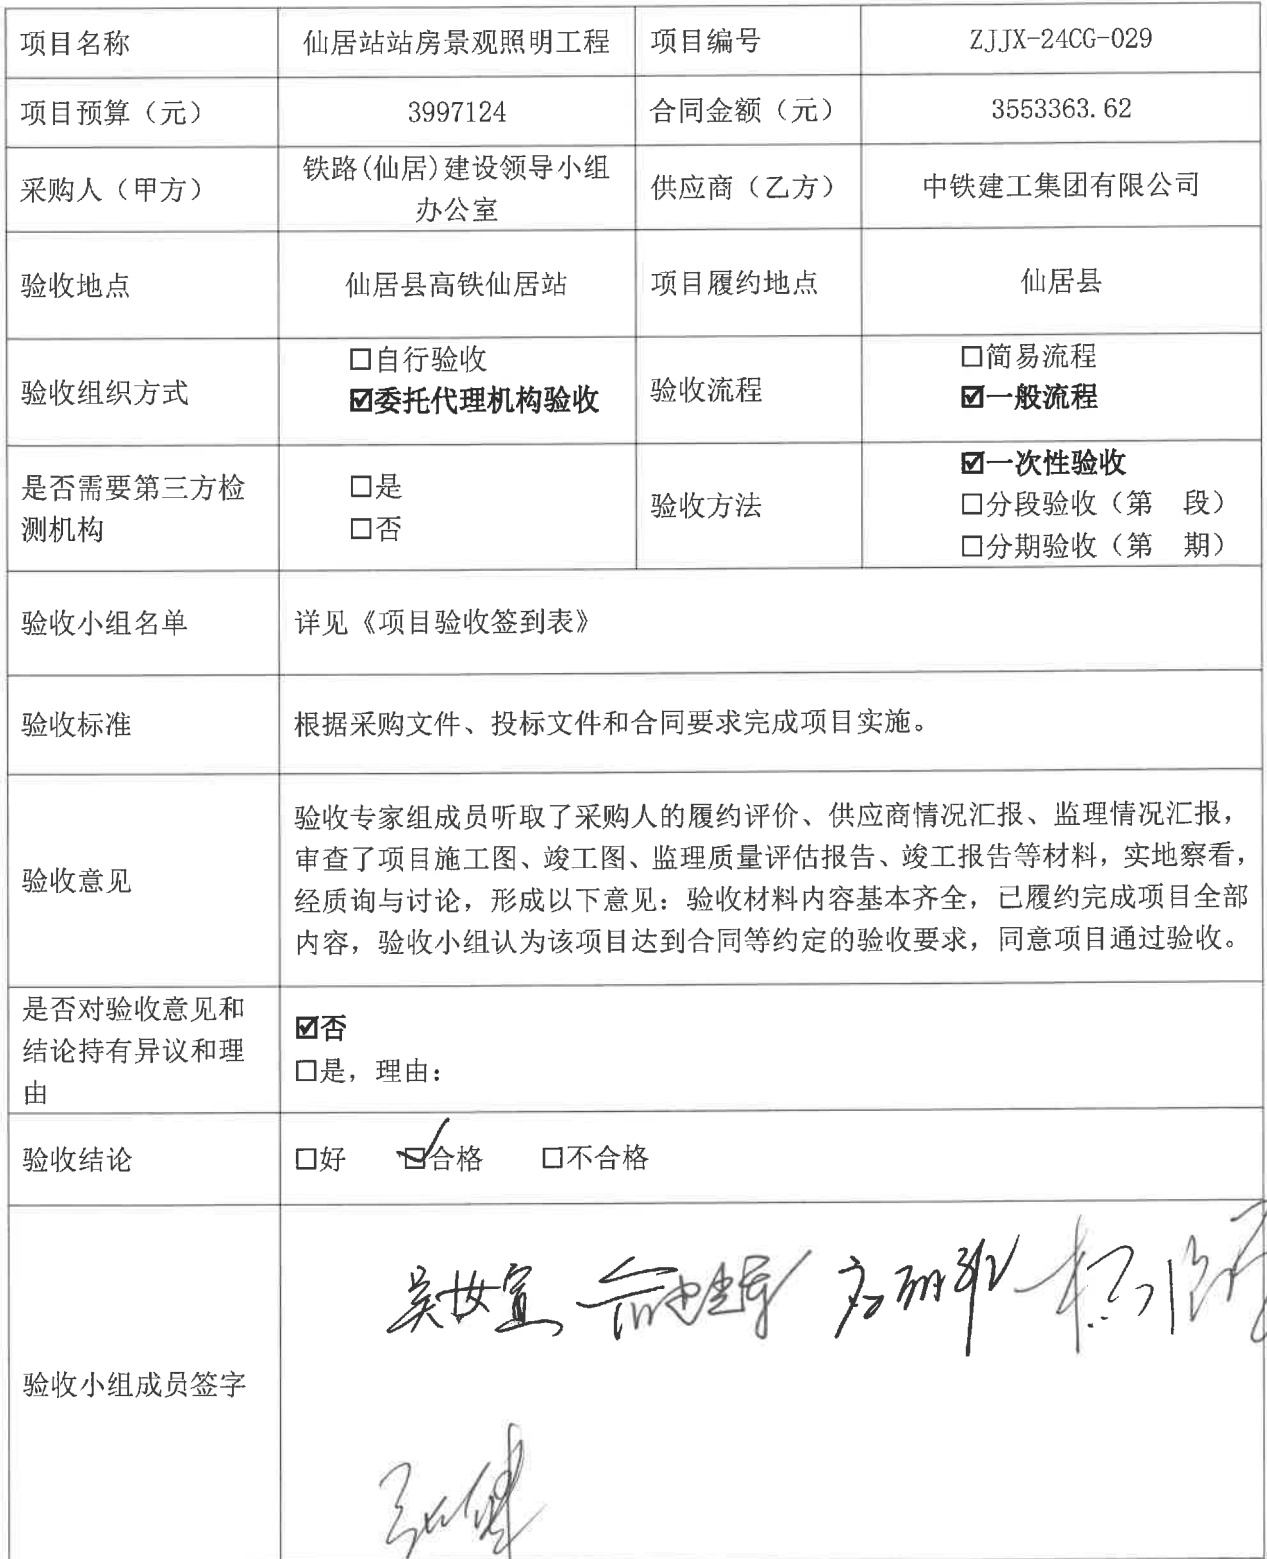 项目名称 仙居站站房景观照明工程 项目编号 ZJJX-24CG-029
项目预算（元） 3997124 合同金额（元） 3553363.62
采购人（甲方） 铁路(仙居)建设领导小组
办公室 供应商（乙方） 中铁建工集团有限公司
验收地点 仙居县高铁仙居站 项目履约地点 仙居县
验收组织方式 ☐自行验收
☑委托代理机构验收 验收流程 ☐简易流程
☑一般流程
是否需要第三方检
测机构 ☐是
☐否 验收方法 ☑一次性验收
☐分段验收（第 段）
☐分期验收（第 期）
验收小组名单 详见《项目验收签到表》
验收标准 根据采购文件、投标文件和合同要求完成项目实施。
验收意见 验收专家组成员听取了采购人的履约评价、供应商情况汇报、监理情况汇报，
审查了项目施工图、竣工图、监理质量评估报告、竣工报告等材料，实地察看，
经质询与讨论，形成以下意见：验收材料内容基本齐全，已履约完成项目全部
内容，验收小组认为该项目达到合同等约定的验收要求，同意项目通过验收。
是否对验收意见和
结论持有异议和理
由 ☑否
☐是，理由：
验收结论 ☐好 ☑合格 ☐不合格
验收小组成员签字 吴妆宣